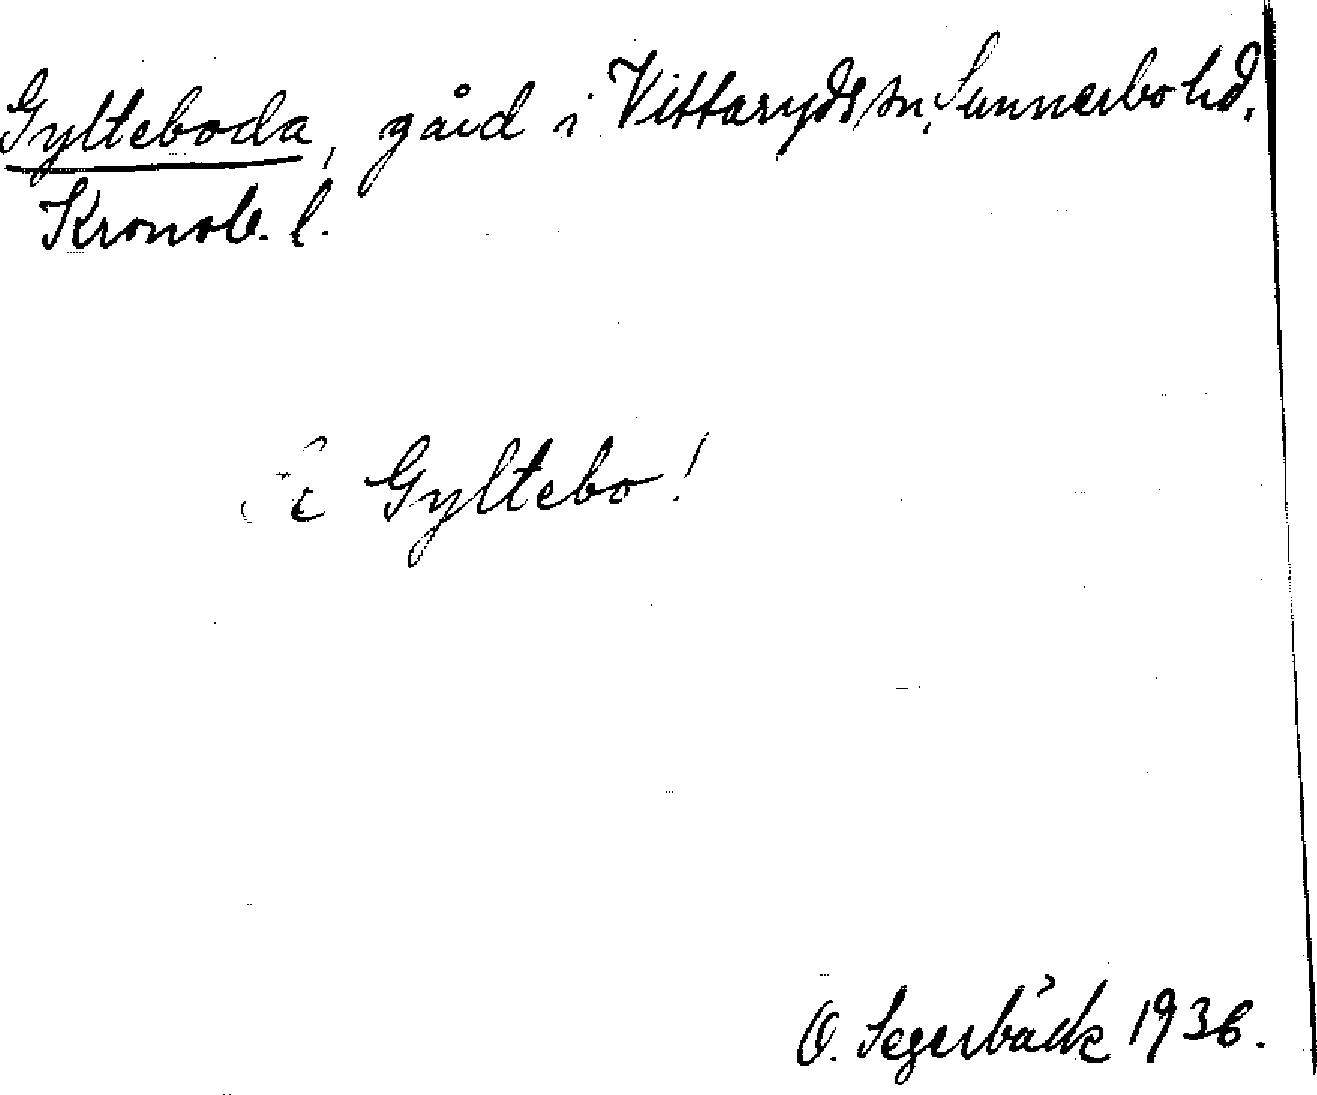 Gylteboda, gård i Vittaryds sn, Sunnerbo hd.
Kronob. l.
Se Gyltebo!
O. Segerbäck 1936.